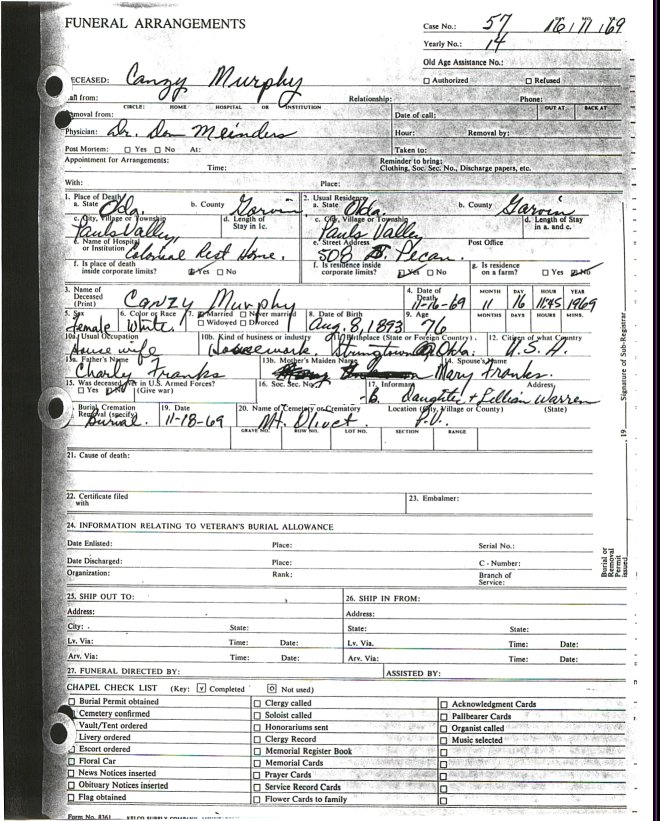 FUNERAL ARRANGEMENTS
Case No.: 57
Yearly No.: 14
Old Age Assistance No.:
☐ Authorized ☐ Refused
DECEASED: Canzy Murphy
Call from: Relationship: Phone:
CIRCLE: HOME HOSPITAL OR INSTITUTION OUT AT BACK AT
Removal from: Date of call:
Physician: Dr. Don Meinders Hour: Removal by:
Post Mortem: ☐ Yes ☐ No At: Taken to:
Appointment for Arrangements: Reminder to bring:
Time: Clothing, Soc. Sec. No., Discharge papers, etc.
With: Place:
1. Place of Death 2. Usual Residence
a. State Okla. b. County Garvin a. State Okla. b. County Garvin
c. City, Village or Township d. Length of Stay in 1c. c. City, Village or Township d. Length of Stay in a. and c.
Pauls Valley, Pauls Valley
e. Name of Hospital or Institution Colonial Rest Home. e. Street Address 508 Pecan. Post Office
f. Is place of death inside corporate limits? ☑ Yes ☐ No f. Is residence inside corporate limits? ☑ Yes ☐ No g. Is residence on a farm? ☐ Yes ☑ No
3. Name of Deceased (Print) Canzy Murphy 4. Date of Death 11-16-69 MONTH 11 DAY 16 HOUR 11:45 YEAR 1969
5. Sex 6. Color or Race 7. ☑ Married ☐ Never married ☐ Widowed ☐ Divorced 8. Date of Birth 9. Age MONTHS DAYS HOURS MINS.
Female White Aug. 8, 1893 76
10a. Usual Occupation 10b. Kind of business or industry 11. Birthplace (State or Foreign Country) 12. Citizen of what Country
House wife Housework. Stringtown Okla. U.S.A.
13a. Father's Name 13b. Mother's Maiden Name 14. Spouse's Name
Charly Franks Mary Franks.
15. Was deceased ever in U.S. Armed Forces? 16. Soc. Sec. No. 17. Informant Address
☐ Yes ☑ No (Give war) daughter + Lillian Warren
Burial, Cremation Removal (specify) 19. Date 20. Name of Cemetery or Crematory Location (City, Village or County) (State)
Burial. 11-18-69 Mt. Olivet P.V.
GRAVE NO. ROW NO. LOT NO. SECTION RANGE
21. Cause of death:
22. Certificate filed with 23. Embalmer:
24. INFORMATION RELATING TO VETERAN'S BURIAL ALLOWANCE
Date Enlisted: Place: Serial No.:
Date Discharged: Place: C - Number:
Organization: Rank: Branch of Service:
25. SHIP OUT TO: 26. SHIP IN FROM:
Address: Address:
City: State: State: State:
Lv. Via: Time: Date: Lv. Via. Time: Date:
Arv. Via: Time: Date: Arv. Via: Time: Date:
27. FUNERAL DIRECTED BY: ASSISTED BY:
CHAPEL CHECK LIST (Key: [V] Completed [O] Not used)
☐ Burial Permit obtained ☐ Clergy called ☐ Acknowledgment Cards
☐ Cemetery confirmed ☐ Soloist called ☐ Pallbearer Cards
Vault/Tent ordered ☐ Honorariums sent ☐ Organist called
Livery ordered ☐ Clergy Record ☐ Music selected
☐ Escort ordered ☐ Memorial Register Book ☐
☐ Floral Car ☐ Memorial Cards ☐
☐ News Notices inserted ☐ Prayer Cards ☐
☐ Obituary Notices inserted ☐ Service Record Cards ☐
☐ Flag obtained ☐ Flower Cards to family ☐
Form No. 8361
Signature of Sub-Registrar
19
Burial or Removal Permit issued